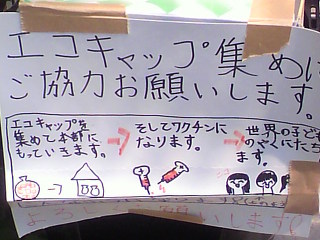 エコキャップ集めに
ご協力お願いします。
エコキャップを
集めて本部に
もっていきます。
そしてワクチンに
なります。
世界の子ども
のやくにたち
ます。
よろ
いします